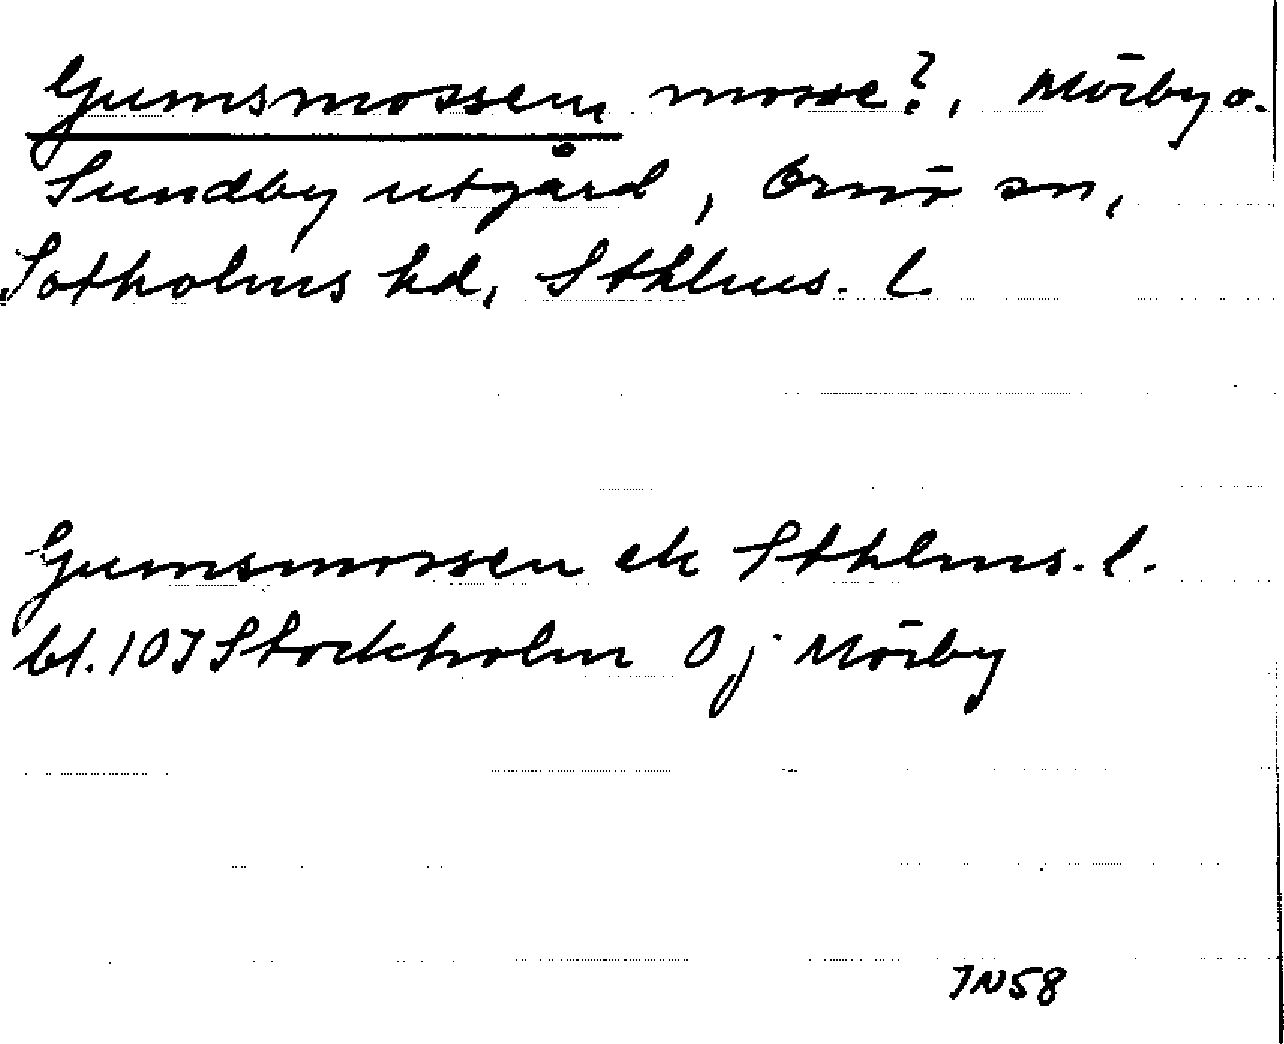 Gumsmossen, mosse?, Mörby o.
Sundby utgård, Ornö sn,
Sotholms hd, Sthlms. l.
Gumsmossen ek Sthlms. l.
bl. 10J Stockholm 0 j Mörby
JN58